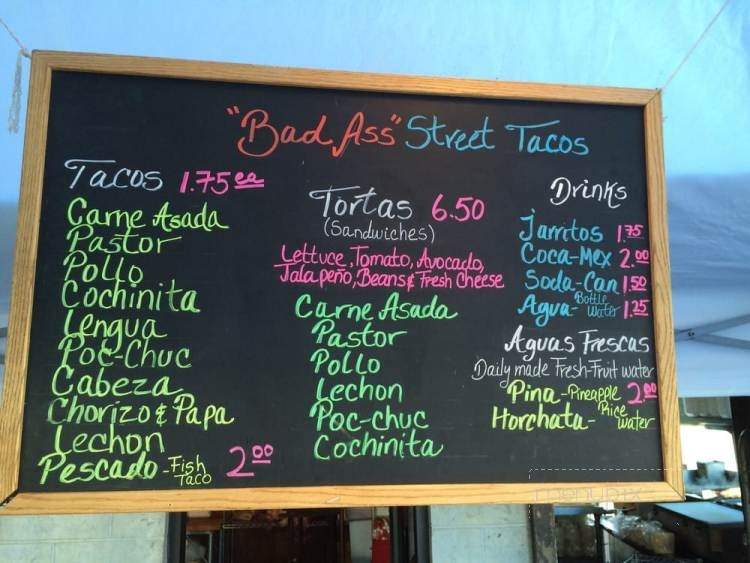 "Bad Ass" Street Tacos
Tacos 1.75 ea
Carne Asada
Pastor
Pollo
Cochinita
Lengua
Poc-Chuc
Cabeza
Chorizo & Papa
Lechon
Pescado - Fish Taco 2.00
Tortas 6.50
(Sandwiches)
Lettuce, Tomato, Avocado,
Jalapeño, Beans & Fresh Cheese
Carne Asada
Pastor
Pollo
Lechon
Poc-chuc
Cochinita
Drinks
Jarritos 1.75
Coca-Mex 2.00
Soda-Can 1.50
Agua - Bottle Water 1.25
Aguas Frescas
Daily made Fresh-Fruit water
Pina - Pineapple 2.00
Horchata - Rice water
menupix